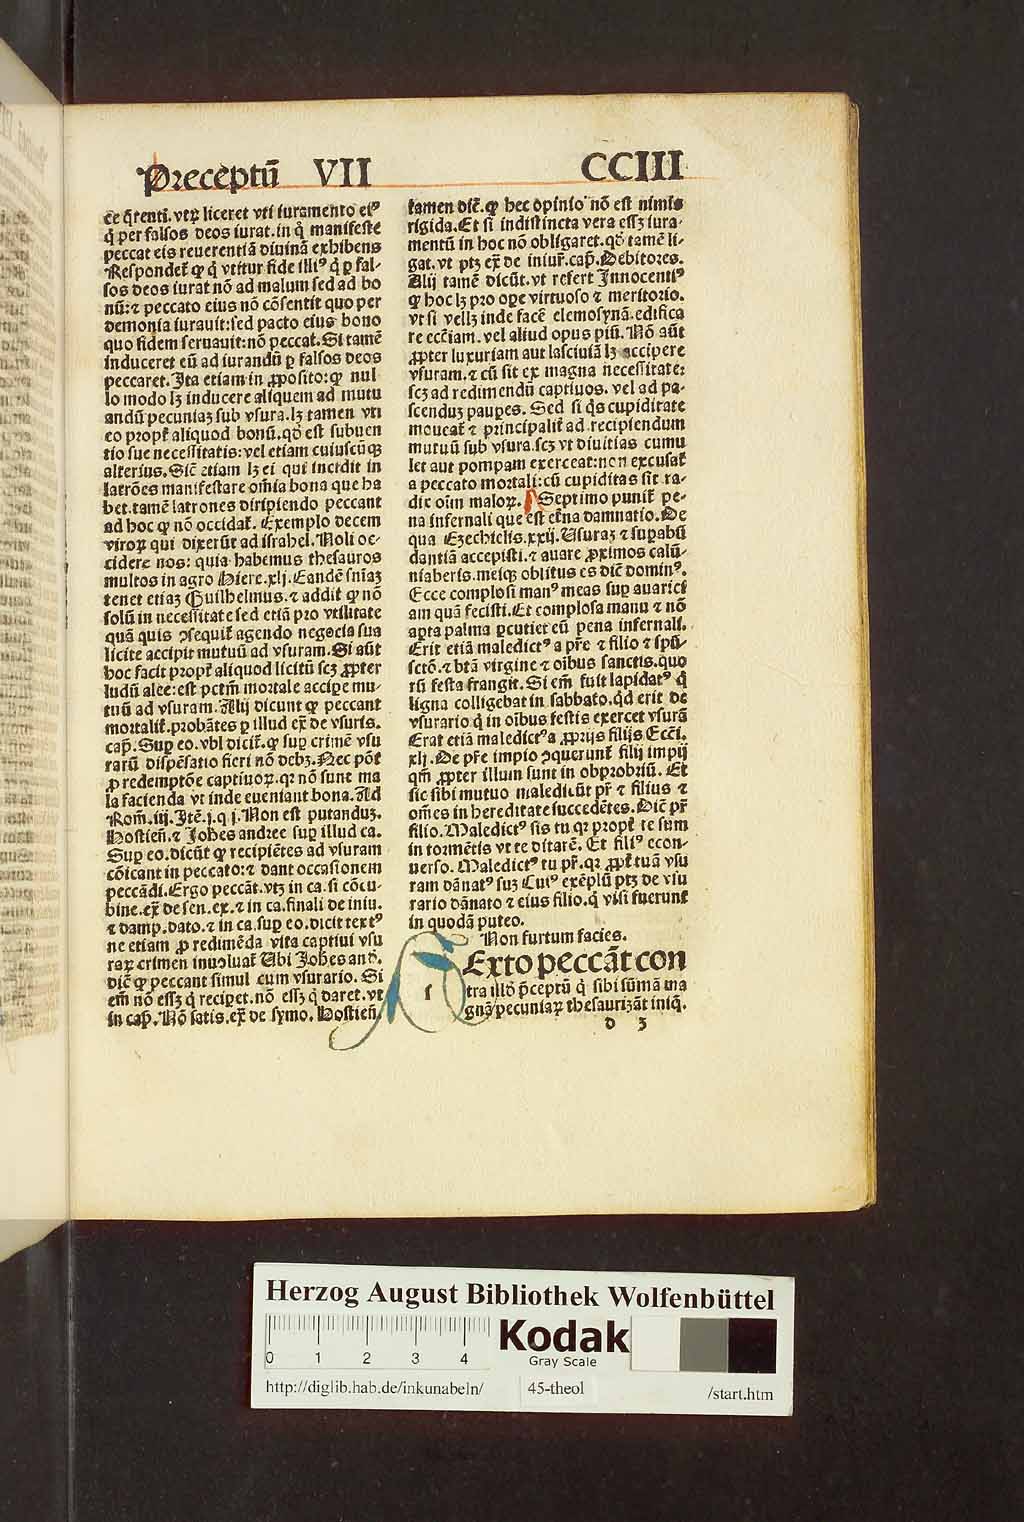 Preceptū VII
CCIII
ce q̄renti. vtꝝ liceret vti iuramento eiꝰ
q̇ per falsos deos iurat. in q̇ manifeste
peccat eis reuerentiā diuinā exhibens
Respondet̄ ꝙ q̇ vtitur fide illiꝰ q̇ ꝑ fal-
sos deos iurat nō ad malum sed ad bo
nū: ⁊ peccato eius nō cōsentit quo per
demonia iurauit: sed pacto eius bono
quo fidem seruauit: nō peccat. Si tamē
induceret eū ad iurandū ꝑ falsos deos
peccaret. Ita etiam in ꝓposito: ꝙ nul
lo modo lꝫ inducere aliquem ad mutu
andū pecuniaꝫ sub vsura. lꝫ tamen vti
eo propt̄ aliquod bonū. qḋ est subuen
tio sue necessitatis: vel etiam cuiuscūqꝫ
alterius. Sic̄ etiam lꝫ ei qui incidit in
latrōes manifestare om̄ia bona que ha
bet. tamē latrones diripiendo peccant
ad hoc ꝙ nō occidat̄. Exemplo decem
viroꝝ qui dixerūt ad israhel. Noli oc-
cidere nos: quia habemus thesauros
multos in agro Hiere. xlj. Eandē sn̄iaꝫ
tenet etiaꝫ Guilhelmus. ⁊ addit ꝙ nō
solū in necessitate sed etiā pro vtilitate
quā quis ꝯsequit̄ agendo negocia sua
licite accipit mutuū ad vsuram. Si aūt
hoc facit propt̄ aliquod licitū scꝫ ꝓpter
ludū alee: est pctm̄ mortale accipe mu-
tuū ad vsuram. Alij dicunt ꝙ peccant
mortalit̄. probātes ꝑ illud ex̄ de vsuris.
cap̄. Suꝑ eo. vbi dicit̄. ꝙ suꝑ crimē vsu
rarū dispēsatio fieri nō debꝫ. Nec pōt
ꝓ redemptōe captiuoꝝ. qꝛ nō sunt ma
la facienda vt inde eueniant bona. Ad
Rom̄. iij. Itē. j. q j. Non est putanduꝫ.
Hostien̄. ⁊ Joh̄es andree suꝑ illud ca.
Suꝑ eo. dicūt ꝙ recipiētes ad vsuram
cōicant in peccato: ⁊ dant occasionem
peccādi. Ergo peccāt. vtꝫ in ca. si cōcu-
bine. ex̄ de sen. ex. ⁊ in ca. finali de iniu.
⁊ damp. dato. ⁊ in ca. suꝑ eo. dicit textꝰ
ne etiam ꝓ redimēda vita captiui vsu
raꝝ crimen inuoluat̄ Ubi Joh̄es an̄d.
dic̄ ꝙ peccant simul cum vsurario. Si
em̄ nō essꝫ q̇ recipet. nō essꝫ q̇ daret. vt
in cap̄. Nō satis. ex̄ de symo. Hostien̄
tamen dic̄. ꝙ hec opinio nō est nimis
rigida. Et si indistincta vera essꝫ iura-
mentū in hoc nō obligaret. qḋ tamē li-
gat. vt ptꝫ ex̄ de iniur̄. cap̄. Debitores.
Alij tamē dicūt. vt refert Innocentiꝰ
ꝙ hoc lꝫ pro oꝑe virtuoso ⁊ meritorio.
vt si vellꝫ inde facē elemosynā. edifica
re ecc̄iam. vel aliud opus piū. Nō aūt
ꝓpter luxuriam aut lasciuiā lꝫ accipere
vsuram. ⁊ cū sit ex magna necessitate:
scꝫ ad redimendū captiuos. vel ad pa-
scenduꝫ pauꝑes. Sed si q̇s cupiditate
moueat̄ ⁊ principalit̄ ad recipiendum
mutuū sub vsura. scꝫ vt diuitias cumu
let aut pompam exerceat: non excusat̄
a peccato mortali: cū cupiditas sit ra-
dix oīm maloꝝ. Septimo punit̄ pe-
na infernali que est et̄na damnatio. De
qua Ezechielis. xxij. Usuraꝫ ⁊ suꝑabū
dantiā accepisti. ⁊ auare ꝓximos calū-
niaberis. meiqꝫ oblitus es dic̄ dominꝰ.
Ecce complosi manꝰ meas suꝑ auarici
am quā fecisti. Et complosa manu ⁊ nō
aꝑta palma ꝑcutiet eū pena infernali.
Erit etiā maledictꝰ a pr̄e ⁊ filio ⁊ spū-
sctō. ⁊ btā virgine ⁊ oībus sanctis. quo
rū festa frangit. Si em̄ fuit lapidatꝰ q̇
ligna colligebat in sabbato. qd erit de
vsurario q̇ in oībus festis exercet vsurā
Erat etiā maledictꝰ a ꝓprijs filijs Ecc̄i.
xlj. De pr̄e impio ꝯquerunt̄ filij impij
qm̄ ꝓpter illum sunt in obprobriū. Et
sic sibi mutuo maledicūt pr̄ ⁊ filius ⁊
om̄es in hereditate succedētes. Dic̄ pr̄
filio. Maledictꝰ sis tu qꝛ propt̄ te sum
in tormētis vt te ditarē. Et filiꝰ econ-
uerso. Maledictꝰ tu pr̄. qꝛ ꝓpt̄ tuā vsu
ram dānatꝰ suꝫ Cuiꝰ exēplū ptꝫ de vsu
rario dānato ⁊ eius filio. q̇ visi fuerunt
in quodā puteo.
Non furtum facies.
s Exto peccāt con
tra illḋ p̄ceptū q̇ sibi sūmā ma
gnā pecuniaꝝ thesaurizāt iniq̄.
d 3
Herzog August Bibliothek Wolfenbüttel
0 1 2 3 4
Kodak
Gray Scale
http://diglib.hab.de/inkunabeln/ 45-theol /start.htm